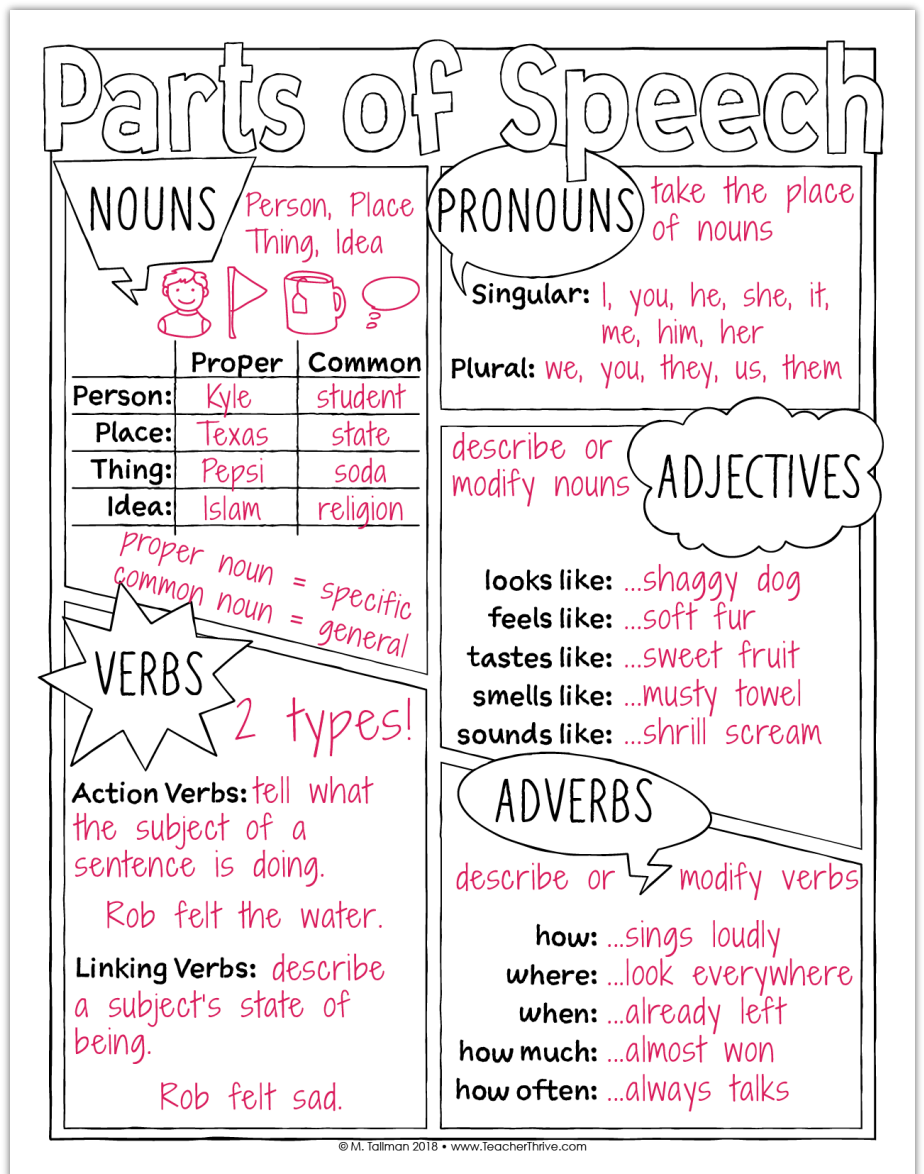 Parts of Speech
NOUNS
Person, Place
Thing, Idea
Proper Common
Person: Kyle student
Place: Texas state
Thing: Pepsi soda
Idea: Islam religion
proper noun = specific
common noun = general
VERBS
2 types!
Action Verbs: tell what
the subject of a
sentence is doing.
Rob felt the water.
Linking Verbs: describe
a subject's state of
being.
Rob felt sad.
PRONOUNS
take the place
of nouns
Singular: I, you, he, she, it,
me, him, her
Plural: we, you, they, us, them
ADJECTIVES
describe or
modify nouns
looks like: ...shaggy dog
feels like: ...soft fur
tastes like: ...sweet fruit
smells like: ...musty towel
sounds like: ...shrill scream
ADVERBS
describe or modify verbs
how: ...sings loudly
where: ...look everywhere
when: ...already left
how much: ...almost won
how often: ...always talks
© M. Tallman 2018 • www.TeacherThrive.com